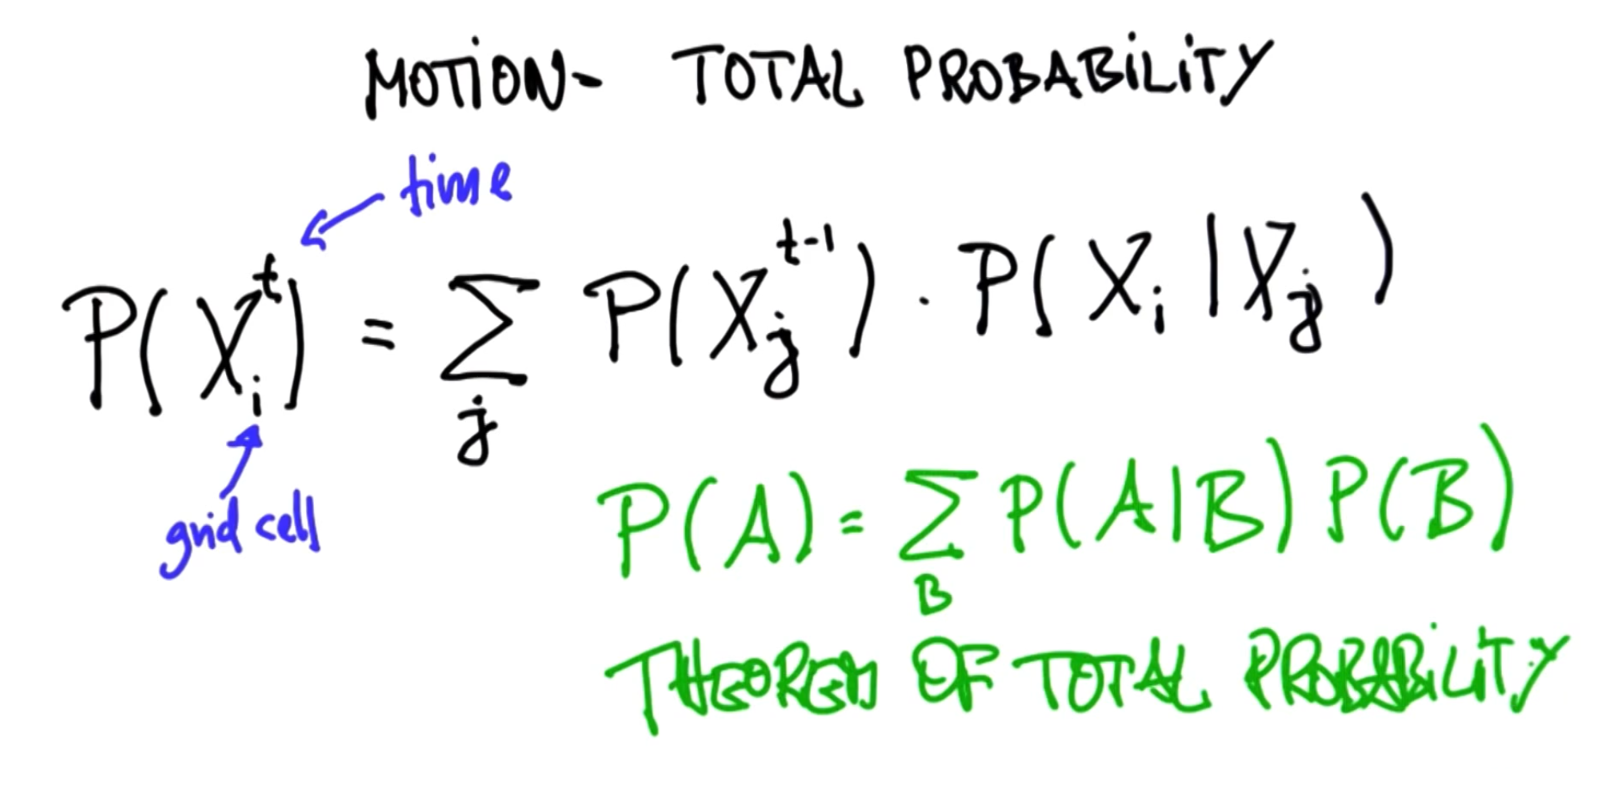 MOTION- TOTAL PROBABILITY
time
P(X_i^t) = ∑_j P(X_j^{t-1}) · P(X_i | X_j)
grid cell
P(A) = ∑_B P(A|B) P(B)
THEOREM OF TOTAL PROBABILITY